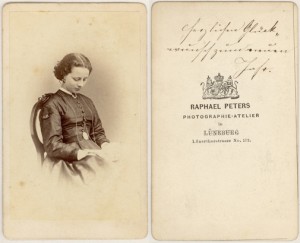 Herzlichen Glück-
wunsch zum neuen
Jahr.
RAPHAEL PETERS
PHOTOGRAPHIE-ATELIER
in
LÜNEBURG